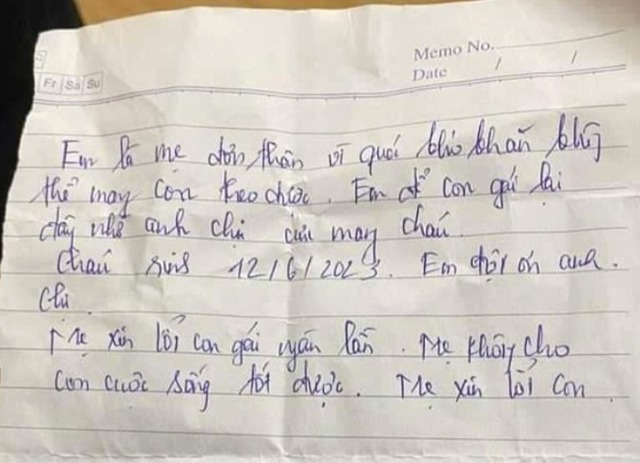 Memo No.
Date / /
Fr Sa Su
Em là mẹ đơn thân vì quá khó khăn khg
thể mang con theo được. Em để con gái lại
đây nhờ anh chị cưu mang cháu.
Cháu sinh 12/6/2023. Em đội ơn anh.
Chị.
Mẹ xin lỗi con gái ngàn lần. Mẹ không cho
con cuộc sống tốt được. Mẹ xin lỗi con